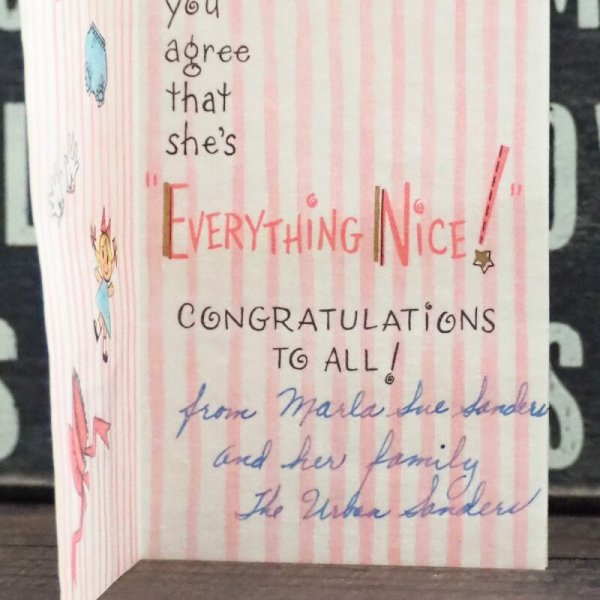 you
agree
that
she's
"EVERYTHING NICE!"
CONGRATULATIONS
TO ALL!
from Marla Sue Sanders
and her family
The Urban Sanders